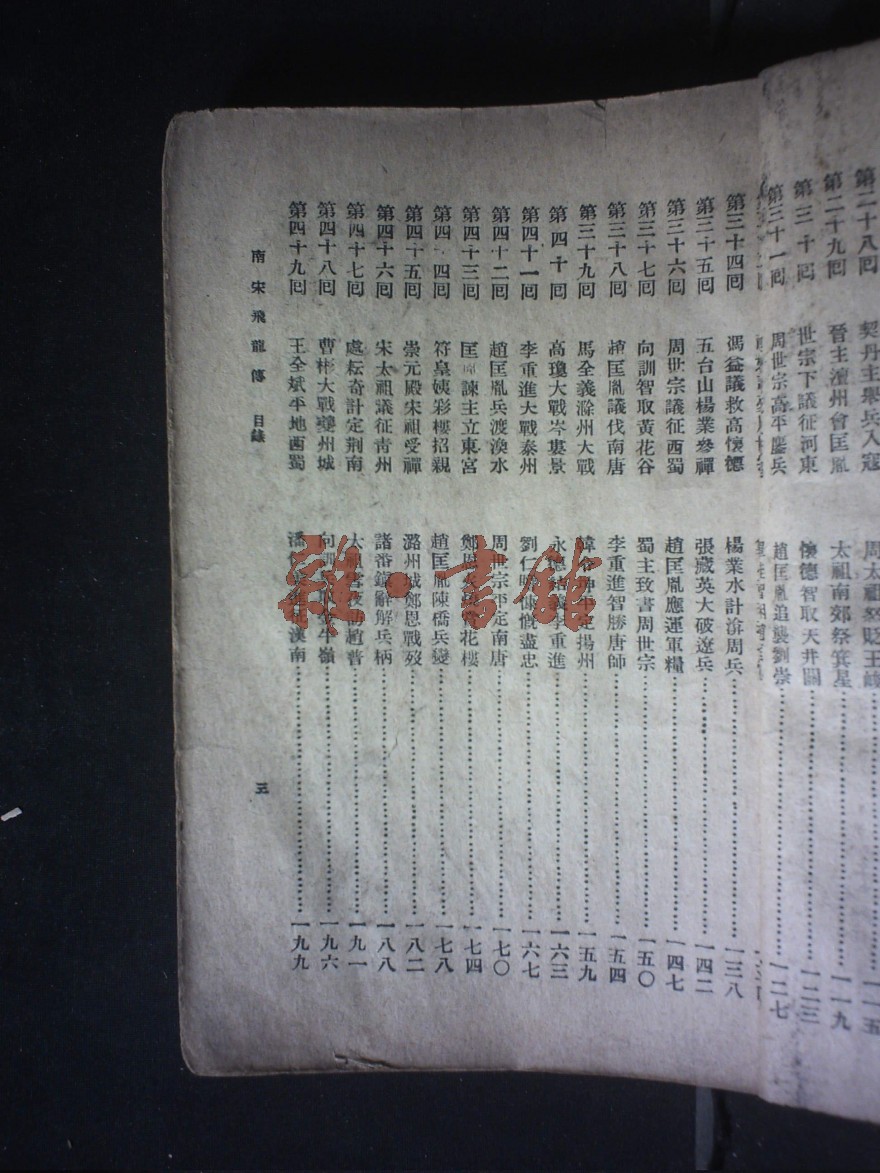 第二十八回 契丹主舉兵入寇 周太祖 貶王峻 一一五
第二十九回 晉主澶州會匡胤 太祖南郊祭箕星 一一九
第三十回 世宗下議征河東 懷德智取天井關 一二三
第三十一回 周世宗高平鏖兵 趙匡胤追襲劉崇 一二七
第三十四回 馮益議救高懷德 楊業水計渰周兵 一三八
第三十五回 五台山楊業參禪 張藏英大破遼兵 一四二
第三十六回 周世宗議征西蜀 趙匡胤應運軍糧 一四七
第三十七回 向訓智取黃花谷 蜀主致書周世宗 一五〇
第三十八回 趙匡胤議伐南唐 李重進智勝唐師 一五四
第三十九回 馬全義滁州大戰 韓令坤平定揚州 一五九
第四十回 高瓊大戰岑婁景 永德結義李重進 一六三
第四十一回 李重進大戰泰州 劉仁贍慷慨盡忠 一六七
第四十二回 趙匡胤兵渡渙水 周世宗平定南唐 一七〇
第四十三回 匡胤諫主立東宮 鄭恩 花樓 一七四
第四十四回 符皇姨彩樓招親 趙匡胤陳橋兵變 一七八
第四十五回 崇元殿宋祖受禪 潞州城鄭恩戰歿 一八二
第四十六回 宋太祖議征青州 諸藩鎮辭解兵柄 一八八
第四十七回 處耘奇計定荆南 太祖雪夜訪趙普 一九一
第四十八回 曹彬大戰夔州城 向訓 牛嶺 一九六
第四十九回 王全斌平地西蜀 潘 漢南 一九九
南宋飛龍傳 目錄
三
雜·書館